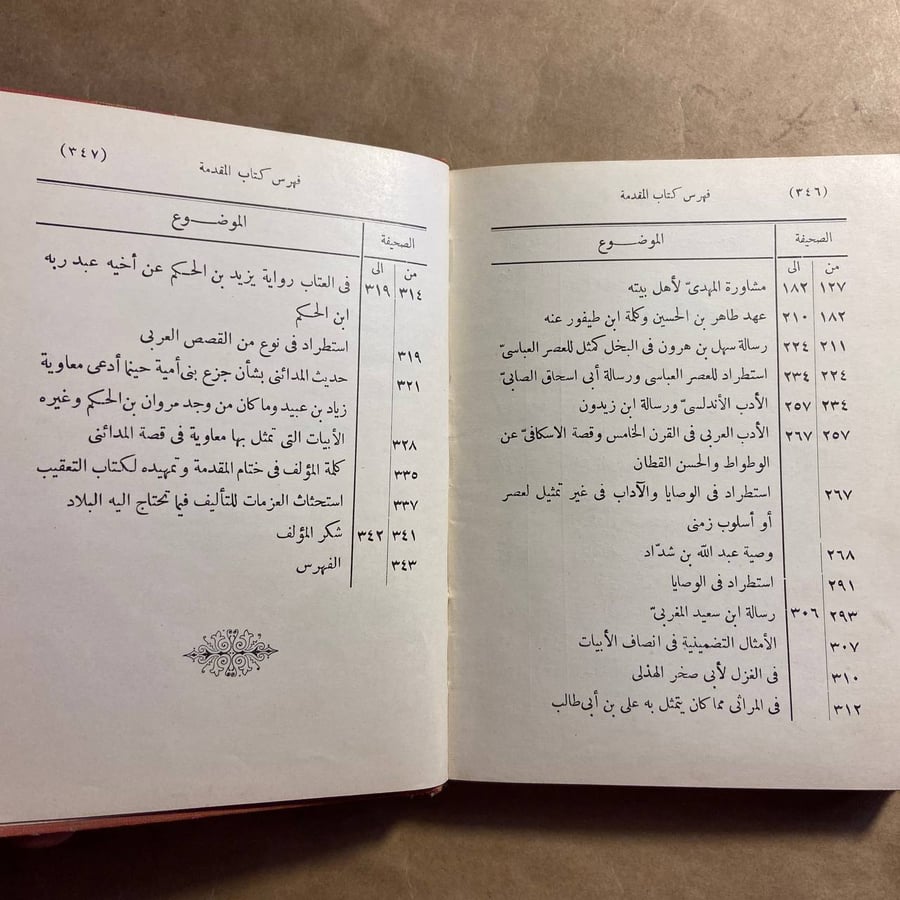 (٣٤٦) فهرس كتاب المقدمة
الصحيفة الموضوع
من الى
١٢٧ ١٨٢ مشاورة المهدىّ لأهل بيته
١٨٢ ٢١٠ عهد طاهر بن الحسين وكلمة ابن طيفور عنه
٢١١ ٢٢٤ رسالة سهل بن هرون فى البخل كمثل للعصر العباسىّ
٢٢٤ ٢٣٤ استطراد للعصر العباسى ورسالة أبى اسحاق الصابىّ
٢٣٤ ٢٥٧ الأدب الأندلسىّ ورسالة ابن زيدون
٢٥٧ ٢٦٧ الأدب العربى فى القرن الخامس وقصة الاسكافىّ عن
الوطواط والحسن القطان
٢٦٧ استطراد فى الوصايا والآداب فى غير تمثيل لعصر
أو أسلوب زمنى
٢٦٨ وصية عبد الله بن شدّاد
٢٩١ استطراد فى الوصايا
٢٩٣ ٣٠٦ رسالة ابن سعيد المغربىّ
٣٠٧ الأمثال التضمينية فى انصاف الأبيات
٣١٠ فى الغزل لأبى صخر الهذلى
٣١٢ فى المراثى مما كان يتمثل به على بن أبى طالب
فهرس كتاب المقدمة (٣٤٧)
الصحيفة الموضوع
من الى
٣١٤ ٣١٩ فى العتاب رواية يزيد بن الحكم عن أخيه عبد ربه
ابن الحكم
٣١٩ استطراد فى نوع من القصص العربى
٣٢١ حديث المدائنى بشأن جزع بنى أمية حينما أدعى معاوية
زياد بن عبيد وما كان من وجد مروان بن الحكم وغيره
٣٢٨ الأبيات التى تمثل بها معاوية فى قصة المدائنى
٣٣٥ كلمة المؤلف فى ختام المقدمة وتمهيده لكتاب التعقيب
٣٣٧ استحثاث العزمات للتأليف فيما تحتاج اليه البلاد
٣٤١ ٣٤٢ شكر المؤلف
٣٤٣ الفهرس